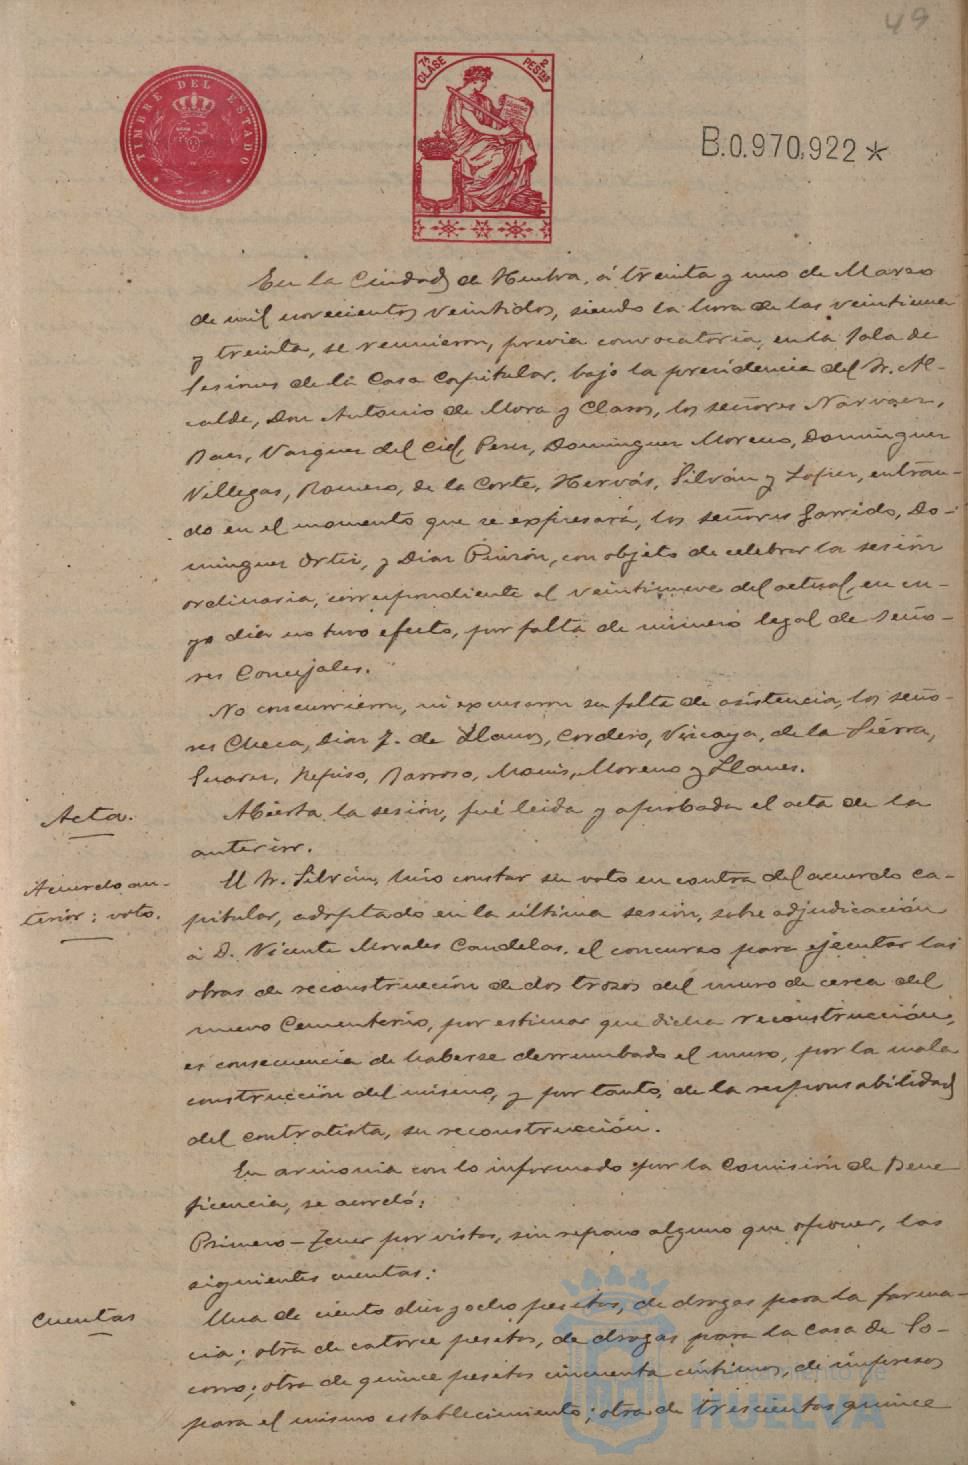 49
TIMBRE DEL ESTADO
7ª CLASE 2 PESTAS
B.0.970,922 *
En la Ciudad de Huelva, á treinta y uno de Marzo
de mil novecientos veintidos, siendo la hora de las veintiuna
y treinta, se reunieron, previa convocatoria, en la Sala de
Sesiones de la Casa Capitular, bajo la presidencia del Sr. Al-
calde, Don Antonio de Mora y Claros, los señores Narvaez,
Baez, Vazquez del Cid, Perez, Dominguez Moreno, Dominguez
Villegas, Romero, de la Corte, Hervás, Silván y Lopez, entran-
do en el momento que se expresará, los señores Garrido, Do-
minguez Ortiz, y Diaz Pinzón, con objeto de celebrar la sesión
ordinaria, correspondiente al veintinueve del actual, en cu-
yo dia no tuvo efecto, por falta de número legal de Seño-
res Concejales.
No concurrieron, ni excusaron su falta de asistencia, los seño-
res Checa, Diaz F. de Llanos, Cordero, Vizcaya, de la Sierra,
Suarez, Repiso, Barroso, Moreno y Llanes.
Acta.
Abierta la sesión, fué leida y aprobada el acta de la
anterior.
Acuerdo an-
terior: voto.
El Sr. Silván, hizo constar su voto en contra del acuerdo ca-
pitular, adoptado en la última sesión, sobre adjudicación
á D. Vicente Morales Candelas, el concurso para ejecutar las
obras de reconstrucción de dos trozos del muro de cerca del
nuevo Cementerio, por estimar que dicha reconstrucción,
es consecuencia de haberse derrumbado el muro, por la mala
construcción del mismo, y por tanto, de la responsabilidad
del contratista, su reconstrucción.
En armonia con lo informado por la Comisión de Bene
ficencia, se acordó:
Primero — Tener por vistas, sin reparo alguno que oponer, las
siguientes cuentas:
Cuentas
Una de ciento diez y ocho pesetas, de drogas para la farma-
cia; otra de catorce pesetas, de drogas para la Casa de So-
corro; otra de quince pesetas cincuenta céntimos, de impresos
para el mismo establecimiento; otra de trescientas quince
Ayuntamiento de
HUELVA